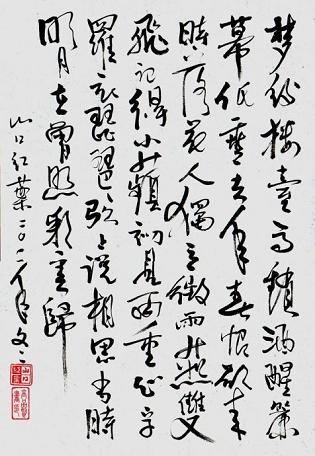 梦後樓臺高鎖酒醒簾
幕低垂去年春恨却来
時落花人獨立微雨燕雙
飛記得小蘋初見兩重心字
羅衣琵琶弦上説相思當時
明月在曾照彩雲歸
山口红葉二〇二一